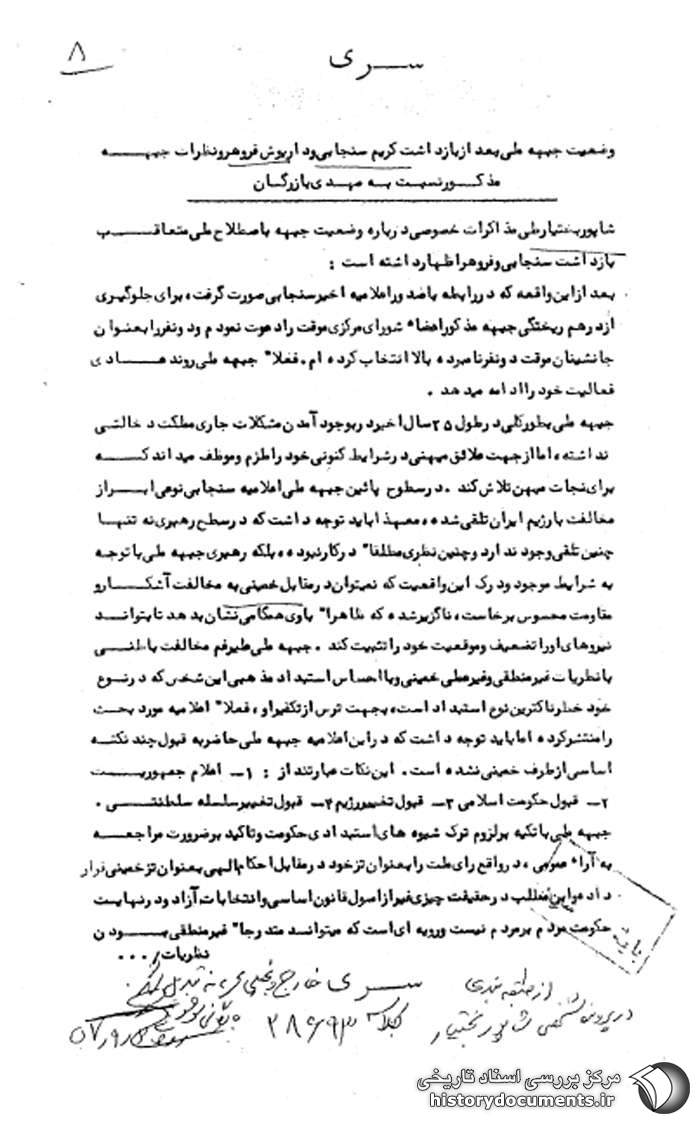 ۸
ســـری
وضعیت جبهه ملی بعد از بازداشت کریم سنجابی و داریوش فروهر و نظرات جبهـــه
مذکـــور نسبت به مهدی بازرگان
شاپور بختیار طی مذاکرات خصوصی درباره وضعیت جبهه باصطلاح ملی متعاقـــب
بازداشت سنجابی و فروهر اظهار داشته است :
بعد از این واقعه که در رابطه با صدور اعلامیه اخیر سنجابی صورت گرفت، برای جلوگیری
از درهم ریختگی جبهه مذکور اعضاء شورای مرکزی موقت را دعوت نمودم و دو نفر را بعنوان
جانشینان موقت دو نفر نامبرده بالا انتخاب کرده ام. فعلا" جبهه ملی روند عـــادی
فعالیت خود را ادامه میدهد .
جبهه ملی بطور کلی در طول ۲۵ سال اخیر در بوجود آمدن مشکلات جاری مملکت دخالتی
نداشته، اما از جهت علائق میهنی در شرایط کنونی خود را ملزم و موظف میداند کـــه
برای نجات میهن تلاش کند . در سطوح پائین جبهه ملی اعلامیه سنجابی نوعی ابـــراز
مخالفت با رژیم ایران تلقی شده، معهذا باید توجه داشت که در سطح رهبری نه تنهـا
چنین تلقی وجود ندارد و چنین نظری مطلقا" در کار نبوده، بلکه رهبری جبهه ملی با توجه
به شرایط موجود و درک این واقعیت که نمیتوان در مقابل خمینی به مخالفت آشکـــار و
مقاومت محسوس برخاست، ناگزیر شده که ظاهرا" با وی همگامی نشان بدهد تا بتوانـــد
نیروهای او را تضعیف و موقعیت خود را تثبیت کند . جبهه ملی علیرغم مخالفت باطنـــی
با نظریات غیرمنطقی و غیرملی خمینی و با احساس استبداد مذهبی این شخص که در نـــوع
خود خطرناکترین نوع استبداد است، بجهت ترس از تکفیر او، فعلا" اعلامیه مورد بحث
را منتشر کرده اما باید توجه داشت که در این اعلامیه جبهه ملی حاضر به قبول چند نکتـه
اساسی از طرف خمینی نشده است . این نکات عبارتند از : ۱ـ اعلام جمهوریـــت
۲ـ قبول حکومت اسلامی ۳ـ قبول تغییر رژیم ۴ـ قبول تغییر سلسله سلطنتـــی .
جبهه ملی با تکیه بر لزوم ترک شیوه های استبدادی حکومت و تاکید بر ضرورت مراجعـــه
به آراء عمومی، در واقع رای ملت را بعنوان تز خود در مقابل احکام الهی بعنوان تز خمینی قرار
داده و این مطلب در حقیقت چیزی غیر از اصول قانون اساسی و انتخابات آزاد و در نهایـت
حکومت مردم بر مردم نیست و رویه ای است که میتواند متدرجا" غیرمنطقی بـــودن
نظریات /...
ســـری
از طبقه بندی
خارج
در پرونده شخصی شاپور بختیار
۲۸۶۹۳
مرکز بررسی اسناد تاریخی
historydocuments.ir